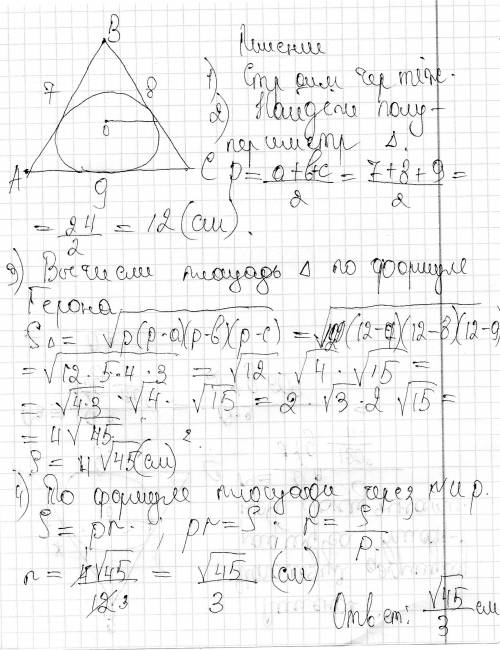 B
Решение
1) Строим чертёж.
7 8
2) Найдём полу-
о
периметр Δ.
A C
9
p = (a+b+c)/2 = (7+8+9)/2 =
= 24/2 = 12 (см).
3) Вычислим площадь Δ по формуле
Герона
SΔ = √(p(p-a)(p-b)(p-c)) = √(12(12-7)(12-8)(12-9))
= √(12·5·4·3) = √12 · √4 · √15 =
= √(4·3) · √4 · √15 = 2 √3 · 2 √15 =
= 4√45
S = 4√45 (см)²
4) По формуле площади через r и p.
S = pr. ; pr = S. r = S/p.
r = 4√45/12·3 = √45/3 (см)
Ответ: √45/3 см